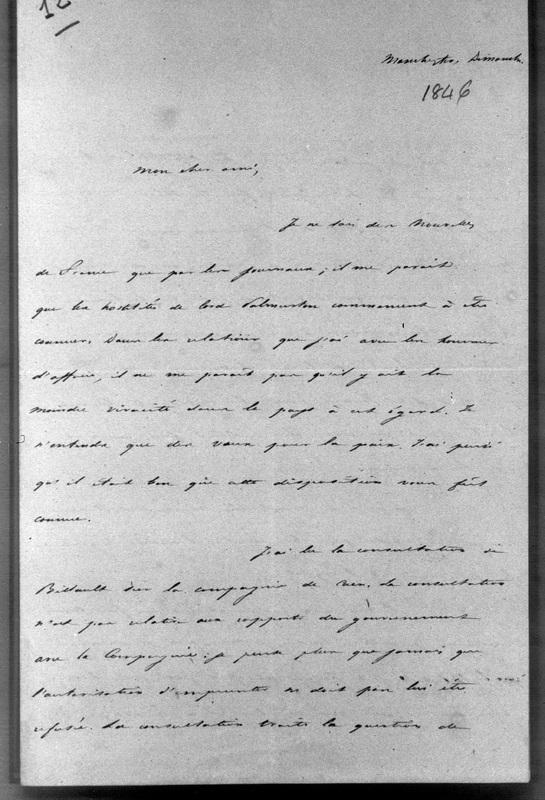 12
Manchester, Dimanche.
1846
Mon cher ami,
Je ne sais des nouvelles
de France que par les journaux; il me paraît
que les hostilités de lord Palmerston commencent à être
connues. Dans les relations que j'ai avec les hommes
d'affaires, il ne me paraît pas qu'il y ait la
moindre vivacité dans le pays à cet égard. Je
n'entends que des vœux pour la paix. J'ai pensé
qu'il était bon que cette disposition vous fût
connue.
J'ai lu la consultation de
sur la compagnie de la consultation
n'est pas relative aux rapports du gouvernement
avec la Compagnie: je pense plus que jamais que
l'autorisation d'emprunter ne doit pas lui être
refusée. La consultation traite la question de